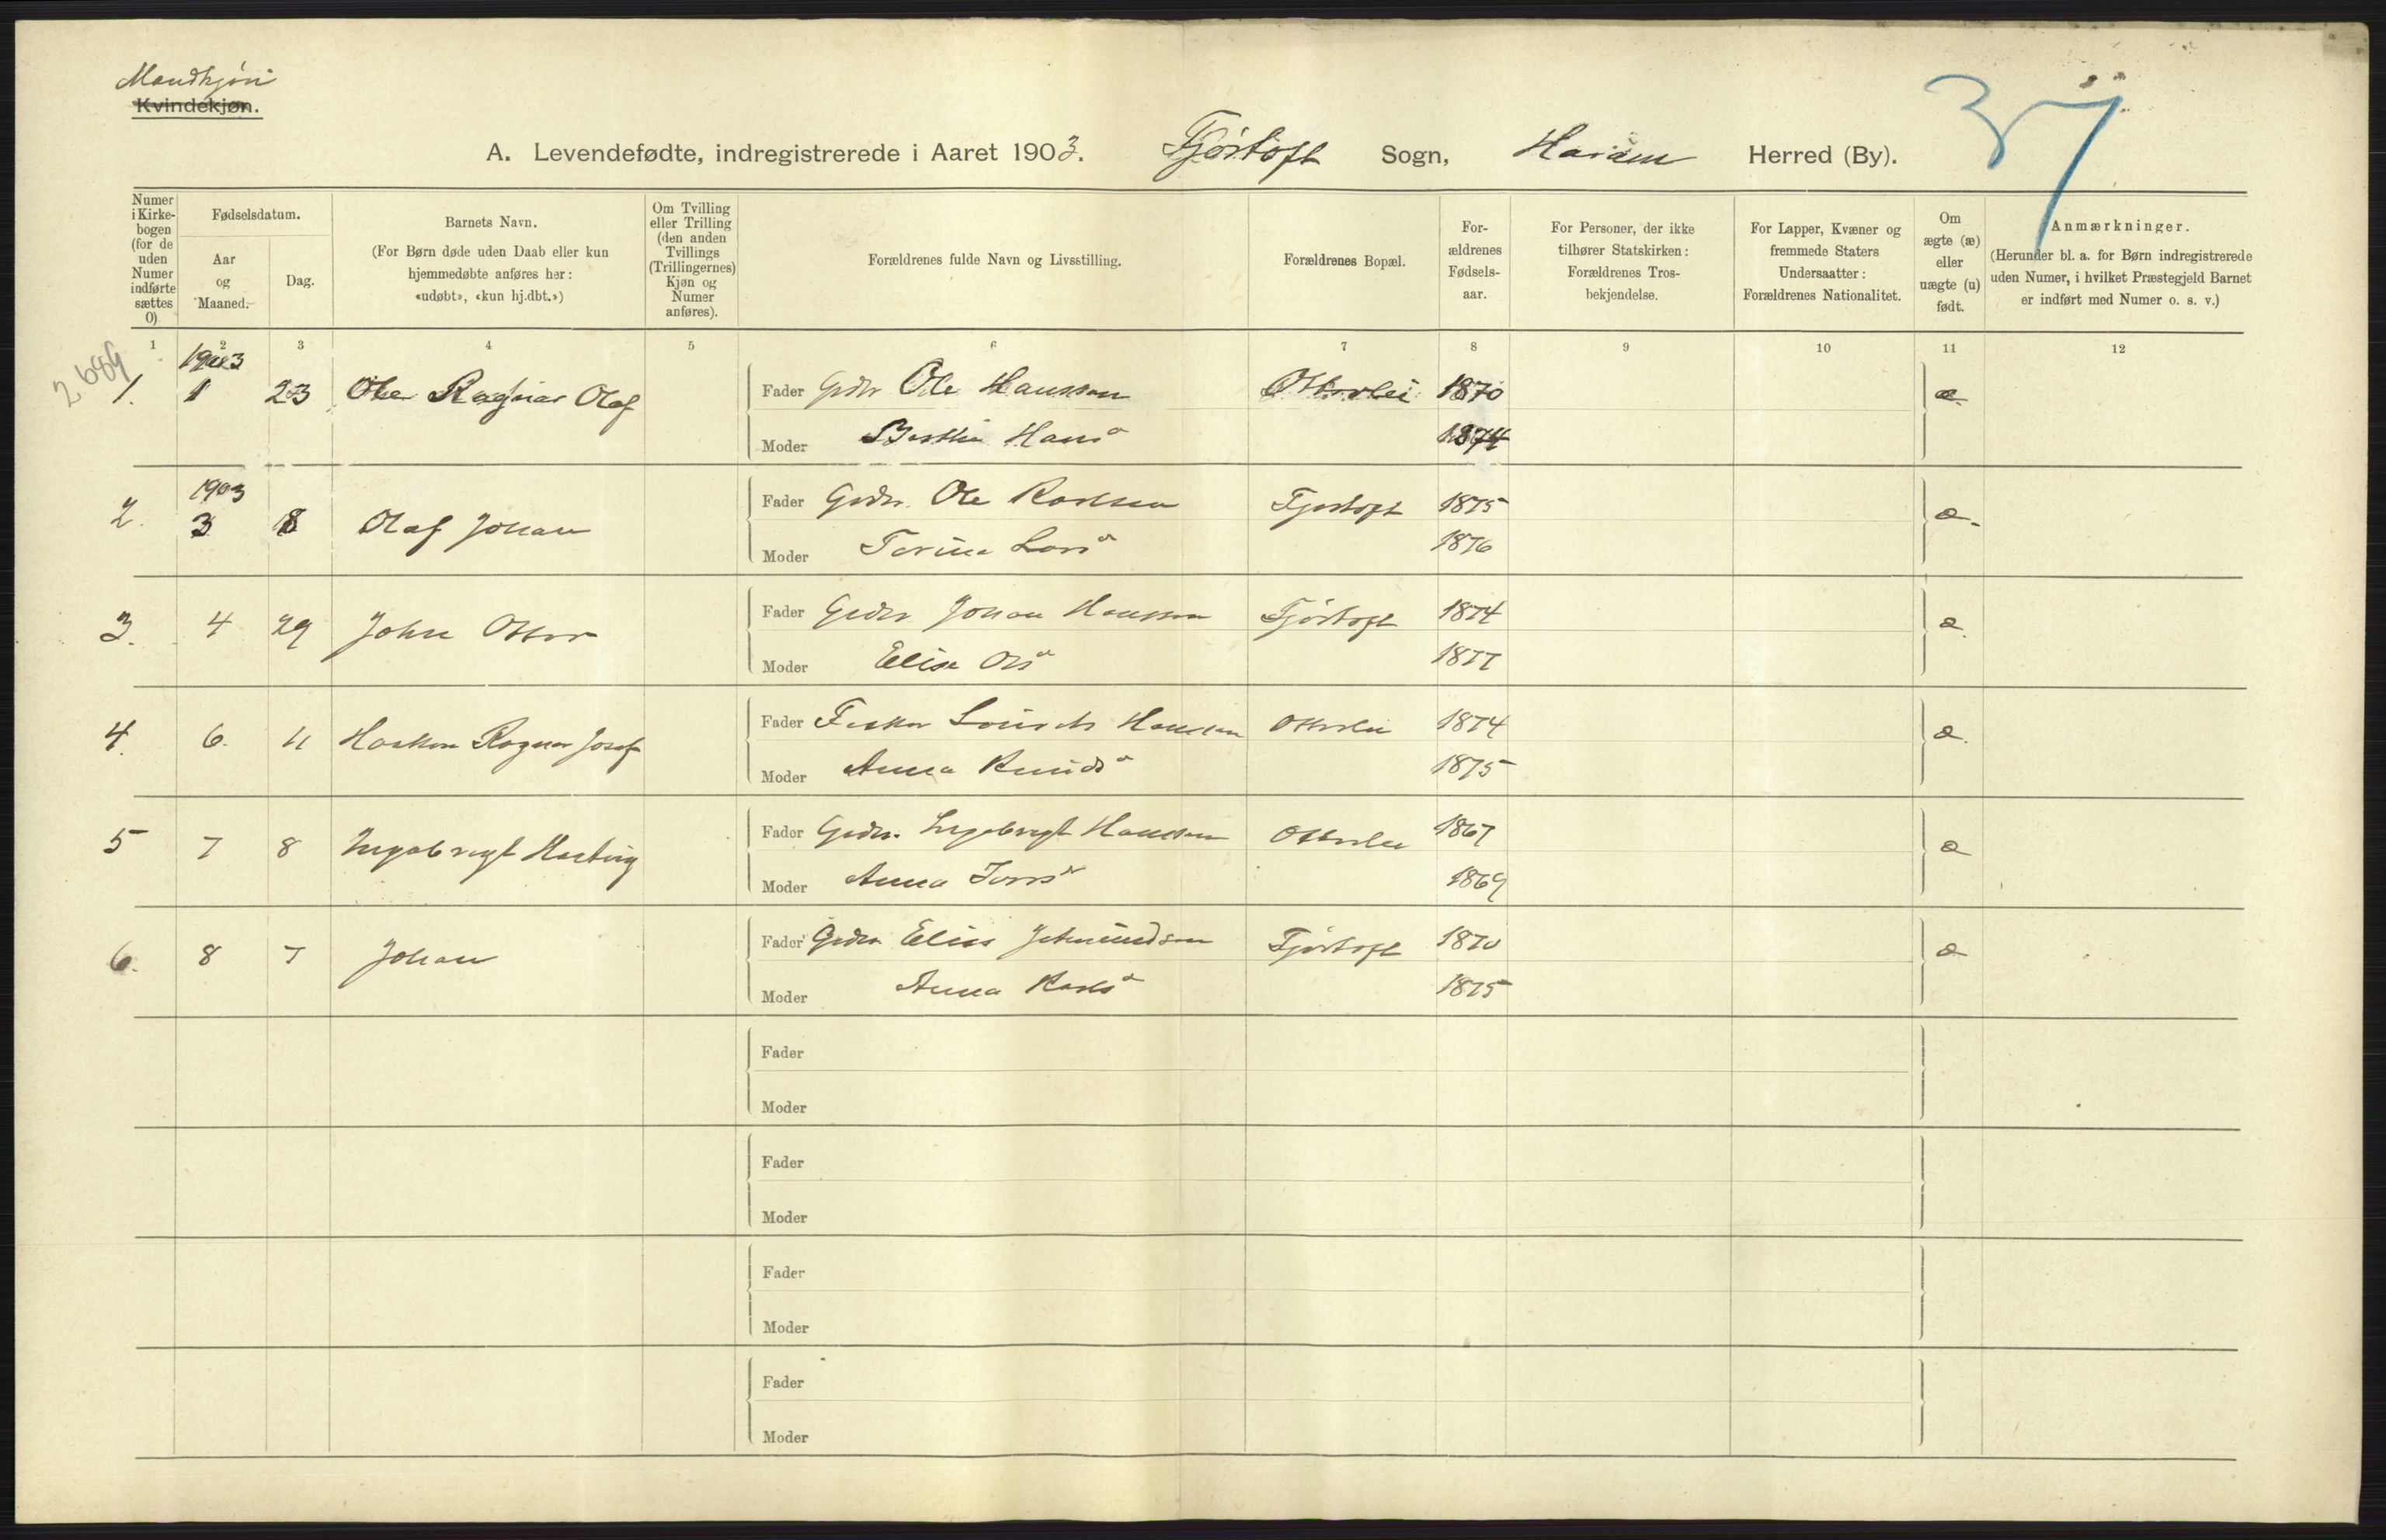 Mandkjøn
Kvindekjøn.
37
A. Levendefødte, indregistrerede i Aaret 1903. Fjørtoft Sogn, Haram Herred (By).
Numer i Kirkebogen (for de uden Numer indførte sættes 0)
Fødselsdatum.
Aar og Maaned.
Dag.
Barnets Navn.
(For Børn døde uden Daab eller kun hjemmedøbte anføres her: «udøbt», «kun hj.dbt.»)
Om Tvilling eller Trilling (den anden Tvillings (Trillingernes) Kjøn og Numer anføres).
Forældrenes fulde Navn og Livsstilling.
Forældrenes Bopæl.
For-ældrenes Fødsels-aar.
For Personer, der ikke tilhører Statskirken: Forældrenes Tros-bekjendelse.
For Lapper, Kvæner og fremmede Staters Undersaatter: Forældrenes Nationalitet.
Om ægte (æ) eller uægte (u) født.
Anmærkninger.
(Herunder bl. a. for Børn indregistrerede uden Numer, i hvilket Præstegjeld Barnet er indført med Numer o. s. v.)
1 2 3 4 5 6 7 8 9 10 11 12
2689
1903
1. 1 23 Ole Ragnar Olaf Fader Gdbr Ole Hansson Otterlei 1870 æ.
Moder Berthe Hansd 1874
1903
2. 3 18 Olaf Johan Fader Grdbr. Ole Karlsen Fjørtoft 1875 æ.
Moder Larsd 1876
3. 4 29 John Otter Fader Grdbr Johan Hansson Fjørtoft 1874 æ.
Moder Elise Olsd 1877
4. 6. 11 Haakon Ragnar Josef Fader Fisker Hansson Otterlei 1874 æ.
Moder Anna Knudsd 1875
5 7 8 Ingebrigt Hartvig Fader Grdbr. Ingebrigt Hansson Otterlei 1867 æ
Moder Anna 1869
6. 8 7 Johan Fader Grdbr. Elias Fjørtoft 1870 æ
Moder Anna Karlsd 1875
Fader
Moder
Fader
Moder
Fader
Moder
Fader
Moder